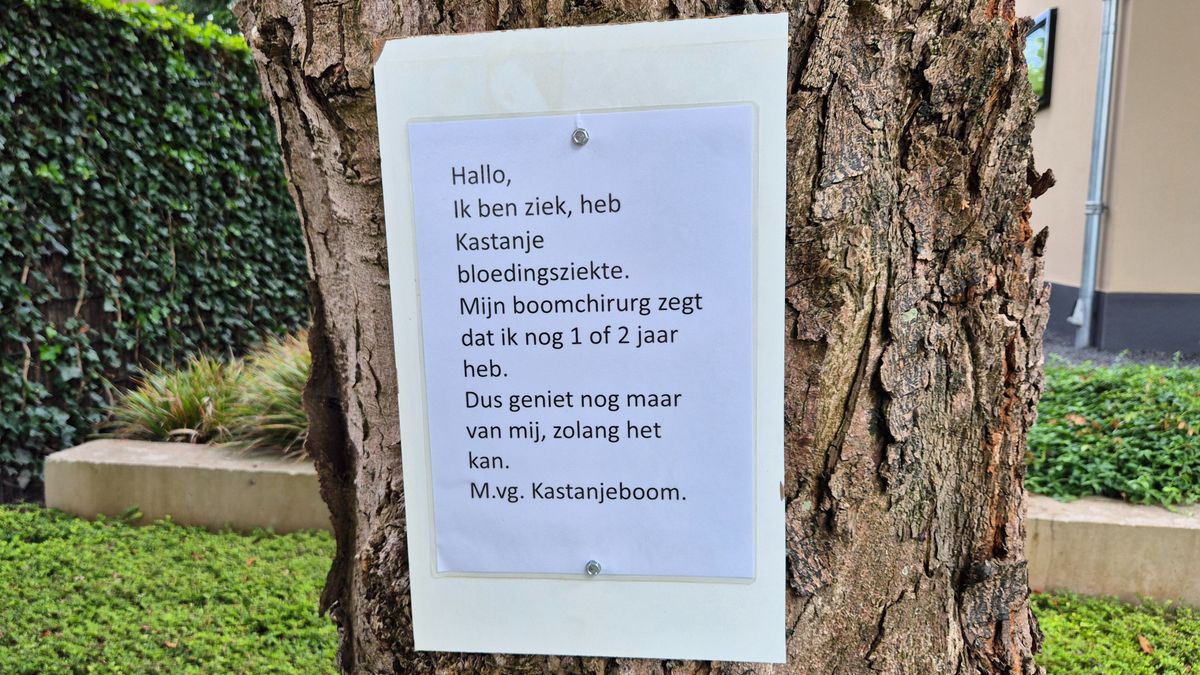 Hallo,
Ik ben ziek, heb
Kastanje
bloedingsziekte.
Mijn boomchirurg zegt
dat ik nog 1 of 2 jaar
heb.
Dus geniet nog maar
van mij, zolang het
kan.
M.vg. Kastanjeboom.